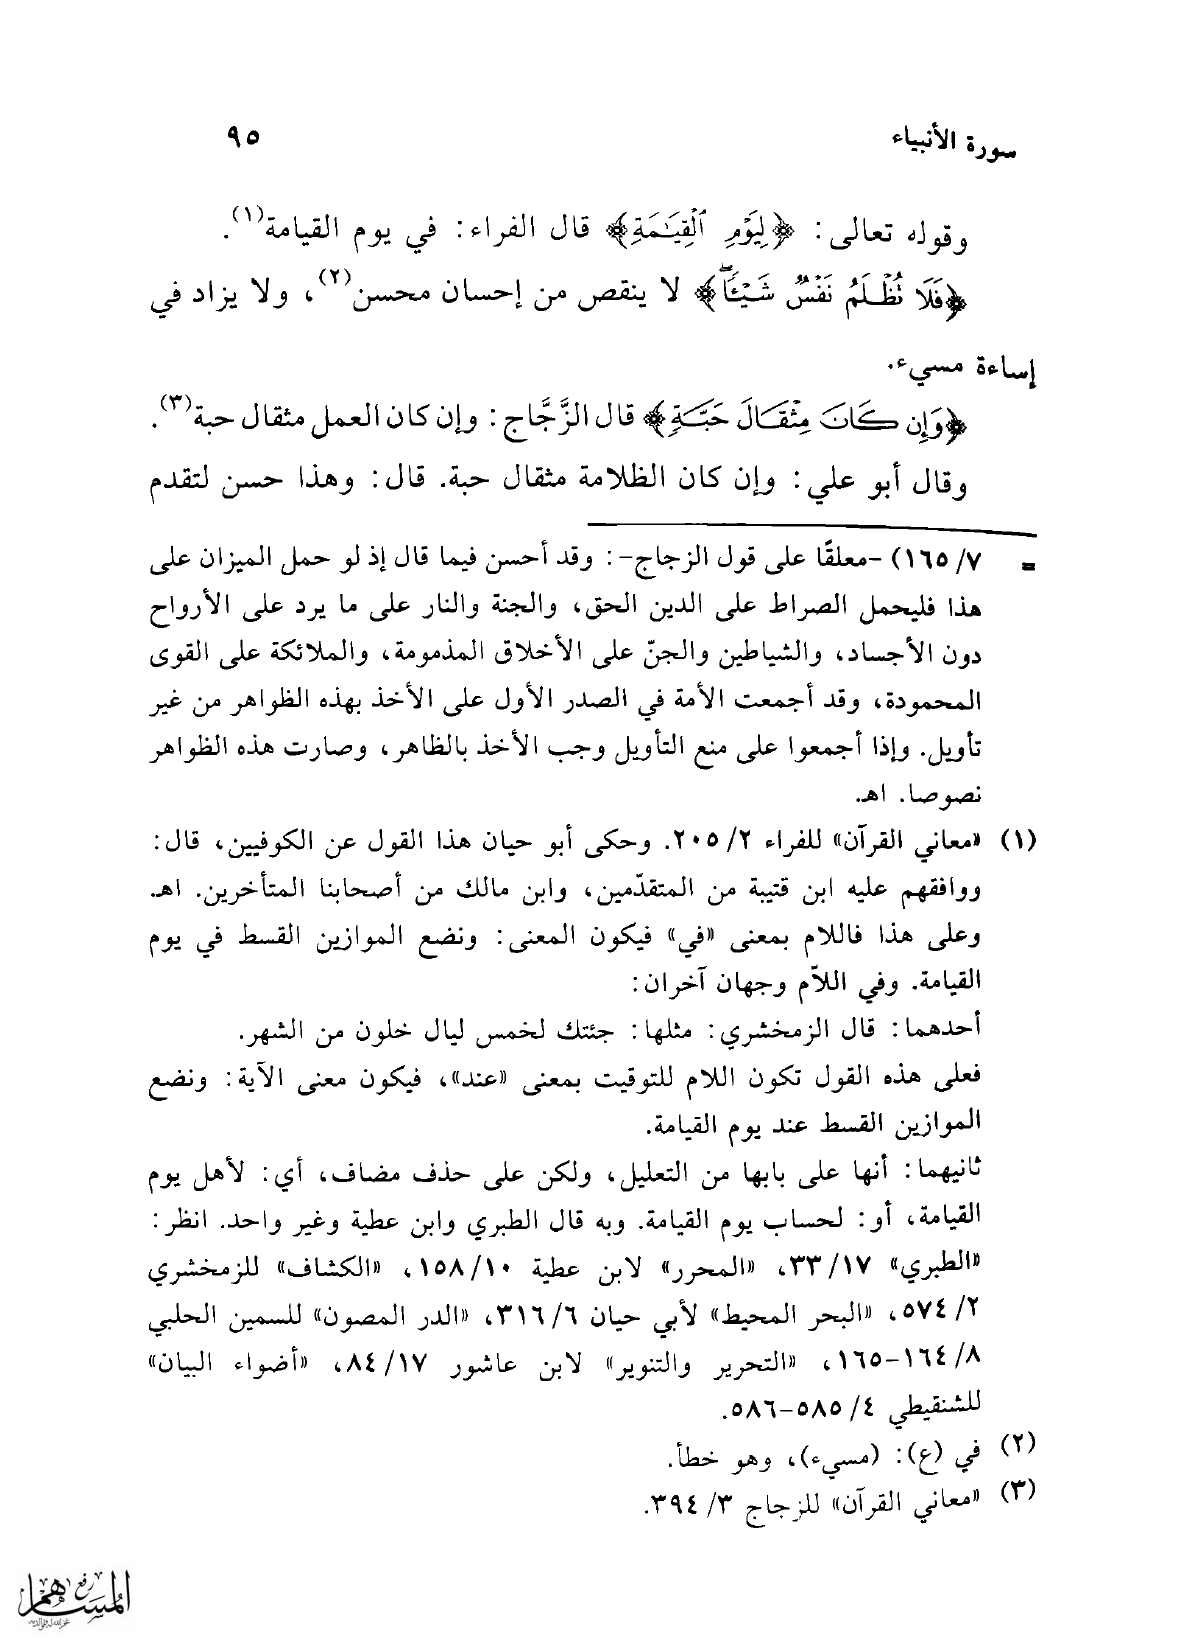 سورة الأنبياء ٩٥
وقوله تعالى: ﴿لِيَوْمِ ٱلْقِيَـٰمَةِ﴾ قال الفراء: في يوم القيامة(١).
﴿فَلَا تُظْلَمُ نَفْسٌ شَيْـًٔاۖ﴾ لا ينقص من إحسان محسن(٢)، ولا يزاد في
إساءة مسيء.
﴿وَإِن كَانَ مِثْقَالَ حَبَّةٍ﴾ قال الزَّجَّاج: وإن كان العمل مثقال حبة(٣).
وقال أبو علي: وإن كان الظلامة مثقال حبة. قال: وهذا حسن لتقدم
= ٧/ ١٦٥) -معلقًا على قول الزجاج-: وقد أحسن فيما قال إذ لو حمل الميزان على
هذا فليحمل الصراط على الدين الحق، والجنة والنار على ما يرد على الأرواح
دون الأجساد، والشياطين والجنّ على الأخلاق المذمومة، والملائكة على القوى
المحمودة، وقد أجمعت الأمة في الصدر الأول على الأخذ بهذه الظواهر من غير
تأويل. وإذا أجمعوا على منع التأويل وجب الأخذ بالظاهر، وصارت هذه الظواهر
نصوصا. اهـ.
(١) «معاني القرآن» للفراء ٢/ ٢٠٥. وحكى أبو حيان هذا القول عن الكوفيين، قال:
ووافقهم عليه ابن قتيبة من المتقدّمين، وابن مالك من أصحابنا المتأخرين. اهـ.
وعلى هذا فاللام بمعنى «في» فيكون المعنى: ونضع الموازين القسط في يوم
القيامة. وفي اللاّم وجهان آخران:
أحدهما: قال الزمخشري: مثلها: جئتك لخمس ليال خلون من الشهر.
فعلى هذه القول تكون اللام للتوقيت بمعنى «عند»، فيكون معنى الآية: ونضع
الموازين القسط عند يوم القيامة.
ثانيهما: أنها على بابها من التعليل، ولكن على حذف مضاف، أي: لأهل يوم
القيامة، أو: لحساب يوم القيامة. وبه قال الطبري وابن عطية وغير واحد. انظر:
«الطبري» ١٧/ ٣٣، «المحرر» لابن عطية ١٠/ ١٥٨، «الكشاف» للزمخشري
٢/ ٥٧٤، «البحر المحيط» لأبي حيان ٦/ ٣١٦، «الدر المصون» للسمين الحلبي
٨/ ١٦٤-١٦٥، «التحرير والتنوير» لابن عاشور ١٧/ ٨٤، «أضواء البيان»
للشنقيطي ٤/ ٥٨٥-٥٨٦.
(٢) في (ع): (مسيء)، وهو خطأ.
(٣) «معاني القرآن» للزجاج ٣/ ٣٩٤.